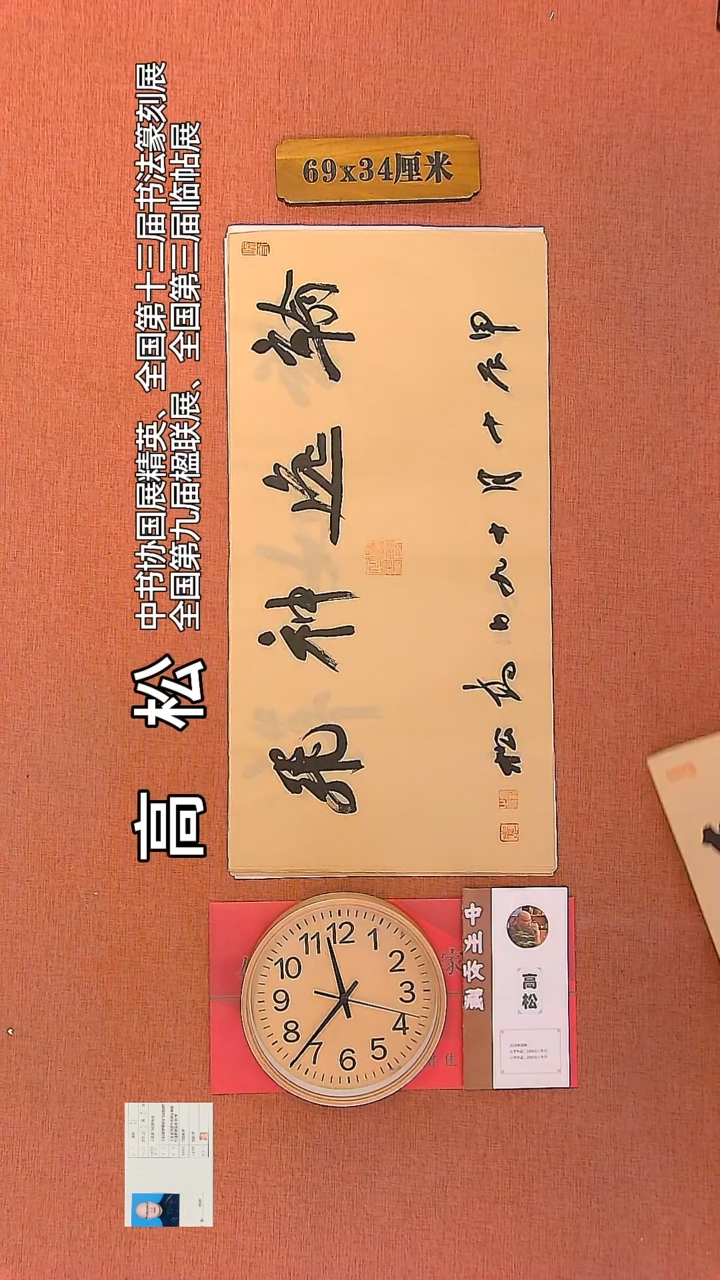 69x34厘米
中书协国展精英、全国第十三届书法篆刻展
全国第九届楹联展、全国第三届临帖展
高松
翰逸神飛
甲辰十月十日高松
12
1
2
3
4
5
6
7
8
9
10
11
家
佳
中州收藏
高松